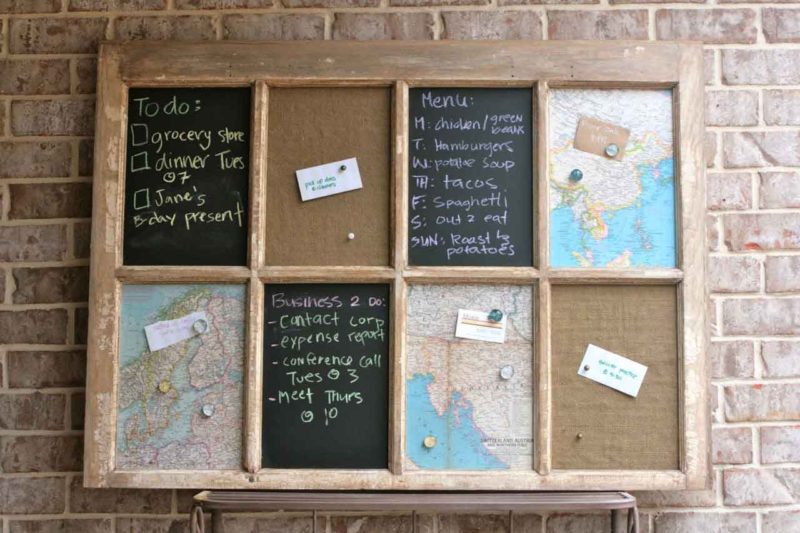 To do:
grocery store
dinner Tues
@7
Jane's
B-day present
pick up dress
@ cleaners
Menu:
M: chicken/green beans
T: Hamburgers
W: potatoe soup
TH: tacos
F: Spaghetti
S: out 2 eat
SUN: Roast & potatoes
Business 2 Do:
- contact corp
- expense report
- conference call
Tues @ 3
- Meet Thurs
@ 10
SWITZERLAND, AUSTRIA